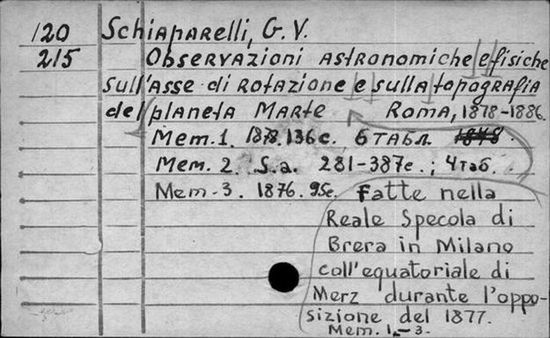 120 Schiaparelli, G. V.
215 Observazioni astronomiche e fisiche
sull'asse di rotazione e sulla topografia
del planeta Marte Roma, 1878-1886.
Mem. 1. 1878. 136 c. 6 табл. 1878.
Mem. 2. S. a. 281-387 c.; 4 таб.
Mem. 3. 1876. 95 c. Fatte nella
Reale Specola di
Brera in Milano
coll'equatoriale di
Merz durante l'oppo-
sizione del 1877.
Mem. 1.-3.